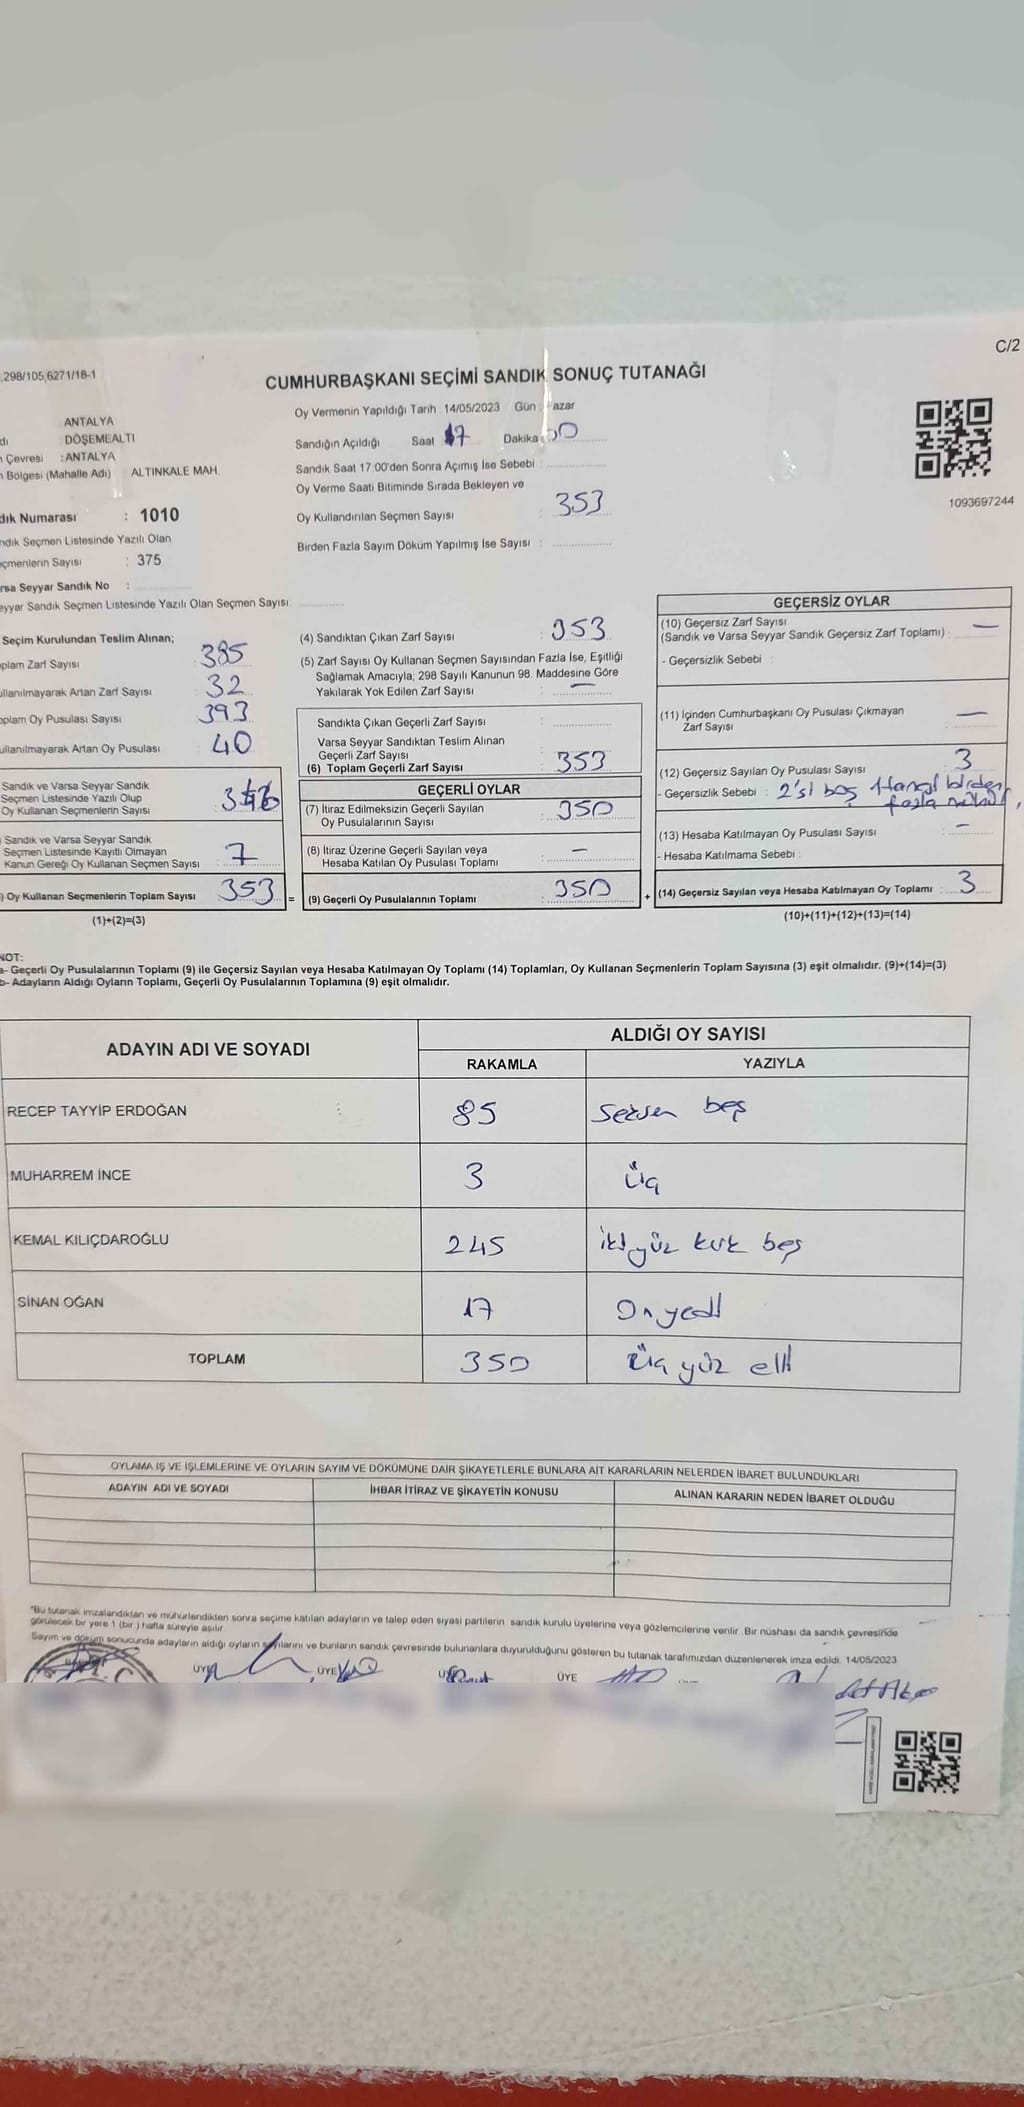 C/2
,298/105,6271/18-1
CUMHURBAŞKANI SEÇİMİ SANDIK SONUÇ TUTANAĞI
ANTALYA
dı DÖŞEMEALTI
n Çevresi :ANTALYA
n Bölgesi (Mahalle Adı) ALTINKALE MAH.
dık Numarası : 1010
ndık Seçmen Listesinde Yazılı Olan
çmenlerin Sayısı : 375
rsa Seyyar Sandık No :
eyyar Sandık Seçmen Listesinde Yazılı Olan Seçmen Sayısı:
Oy Vermenin Yapıldığı Tarih 14/05/2023 Gün : azar
Sandığın Açıldığı Saat 17 Dakika
Sandık Saat 17:00'den Sonra Açımış İse Sebebi
Oy Verme Saati Bitiminde Sırada Bekleyen ve
Oy Kullandırılan Seçmen Sayısı : 353
Birden Fazla Sayım Döküm Yapılmış İse Sayısı :
1093697244
Seçim Kurulundan Teslim Alınan;
plam Zarf Sayısı : 385
ullanılmayarak Artan Zarf Sayısı : 32
oplam Oy Pusulası Sayısı : 393
ullanılmayarak Artan Oy Pusulası : 40
Sandık ve Varsa Seyyar Sandık
Seçmen Listesinde Yazılı Olup
Oy Kullanan Seçmenlerin Sayısı
Sandık ve Varsa Seyyar Sandık
Seçmen Listesinde Kayıtlı Olmayan
Kanun Gereği Oy Kullanan Seçmen Sayısı : 7
) Oy Kullanan Seçmenlerin Toplam Sayısı : 353 =
(1)+(2)=(3)
(4) Sandıktan Çıkan Zarf Sayısı : 353
(5) Zarf Sayısı Oy Kullanan Seçmen Sayısından Fazla İse, Eşitliği
Sağlamak Amacıyla; 298 Sayılı Kanunun 98. Maddesine Göre
Yakılarak Yok Edilen Zarf Sayısı : —
Sandıkta Çıkan Geçerli Zarf Sayısı :
Varsa Seyyar Sandıktan Teslim Alınan
Geçerli Zarf Sayısı :
(6) Toplam Geçerli Zarf Sayısı : 353
GEÇERLİ OYLAR
(7) İtiraz Edilmeksizin Geçerli Sayılan
Oy Pusulalarının Sayısı : 350
(8) İtiraz Üzerine Geçerli Sayılan veya
Hesaba Katılan Oy Pusulası Toplamı : —
(9) Geçerli Oy Pusulalarının Toplamı : 350 +
GEÇERSİZ OYLAR
(10) Geçersiz Zarf Sayısı
(Sandık ve Varsa Seyyar Sandık Geçersiz Zarf Toplamı) : —
- Geçersizlik Sebebi :
(11) İçinden Cumhurbaşkanı Oy Pusulası Çıkmayan
Zarf Sayısı : —
(12) Geçersiz Sayılan Oy Pusulası Sayısı : 3
- Geçersizlik Sebebi : 2'si boş 1 birden
fazla
(13) Hesaba Katılmayan Oy Pusulası Sayısı : —
- Hesaba Katılmama Sebebi :
(14) Geçersiz Sayılan veya Hesaba Katılmayan Oy Toplamı : 3
(10)+(11)+(12)+(13)=(14)
NOT:
a- Geçerli Oy Pusulalarının Toplamı (9) ile Geçersiz Sayılan veya Hesaba Katılmayan Oy Toplamı (14) Toplamları, Oy Kullanan Seçmenlerin Toplam Sayısına (3) eşit olmalıdır. (9)+(14)=(3)
b- Adayların Aldığı Oyların Toplamı, Geçerli Oy Pusulalarının Toplamına (9) eşit olmalıdır.
ADAYIN ADI VE SOYADI ALDIĞI OY SAYISI
RAKAMLA YAZIYLA
RECEP TAYYİP ERDOĞAN 85 Seksen beş
MUHARREM İNCE 3 üç
KEMAL KILIÇDAROĞLU 245 iki yüz kırk beş
SİNAN OĞAN 17 Onyedi
TOPLAM 350 üç yüz elli
OYLAMA İŞ VE İŞLEMLERİNE VE OYLARIN SAYIM VE DÖKÜMÜNE DAİR ŞİKAYETLERLE BUNLARA AİT KARARLARIN NELERDEN İBARET BULUNDUKLARI
ADAYIN ADI VE SOYADI İHBAR İTİRAZ VE ŞİKAYETİN KONUSU ALINAN KARARIN NEDEN İBARET OLDUĞU
*Bu tutanak imzalandıktan ve mühürlendikten sonra seçime katılan adayların ve talep eden siyasi partilerin sandık kurulu üyelerine veya gözlemcilerine verilir. Bir nüshası da sandık çevresinde
görülecek bir yere 1 (bir ) hafta süreyle asılır.
Sayım ve döküm sonucunda adayların aldığı oyların sayılarını ve bunların sandık çevresinde bulunanlara duyurulduğunu gösteren bu tutanak tarafımızdan düzenlenerek imza edildi. 14/05/2023
ÜYE ÜYE ÜYE